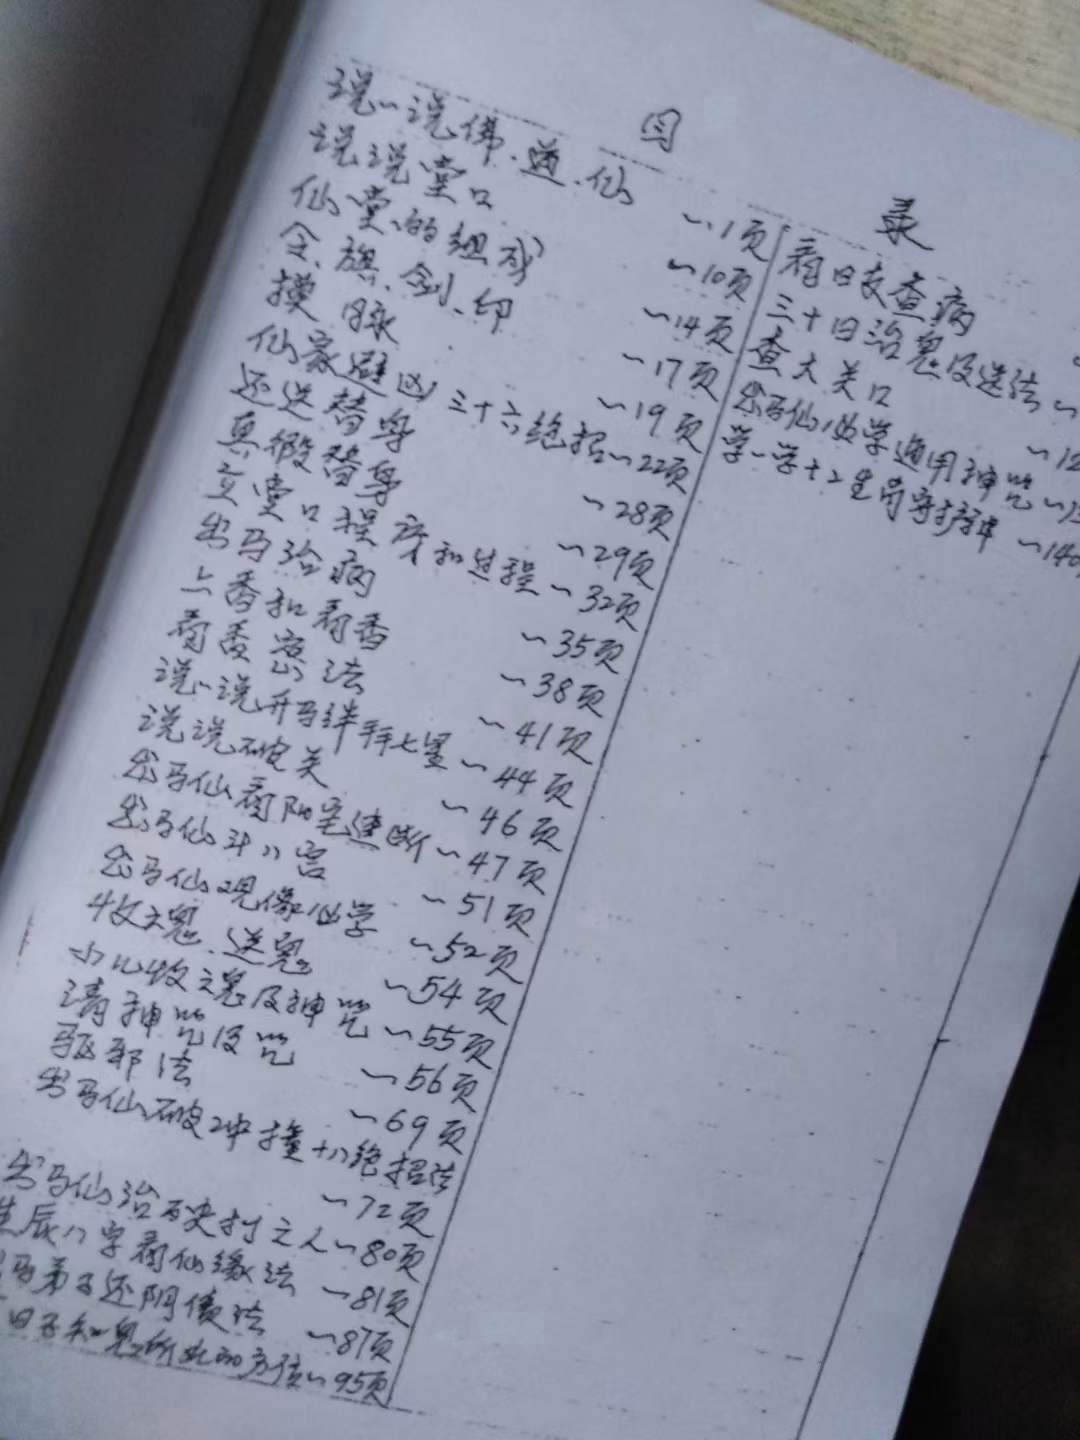 目录
说一说佛、道、仙 ~1页
说说堂口 ~10页
仙堂的组成 ~14页
令、旗、剑、印 ~17页
摸脉 ~19页
仙家避凶三十六绝招~22页
还送替身 ~28页
真假替身 ~29页
立堂口程序和过程~32页
出马治病 ~35页
上香和看香 ~38页
看香密法 ~41页
说一说开马绊拜七星~44页
说说破关 ~46页
出马仙看阳宅速断~47页
出马仙 八宫 ~51页
出马仙观像必学 ~52页
收魂、送鬼 ~54页
小儿收魂及神咒 ~55页
请神咒及咒 ~56页
驱邪法 ~69页
出马仙破冲撞十八绝招法 ~72页
出马仙治 之人~80页
生辰八字看仙缘法 ~81页
马弟子还阴债法 ~87页
日子知鬼所在的方位~95页
看日支查病
三十日治鬼及送法~
查大关口 ~12
出马仙必学通用神咒~13
学一学十二生肖守护神 ~140